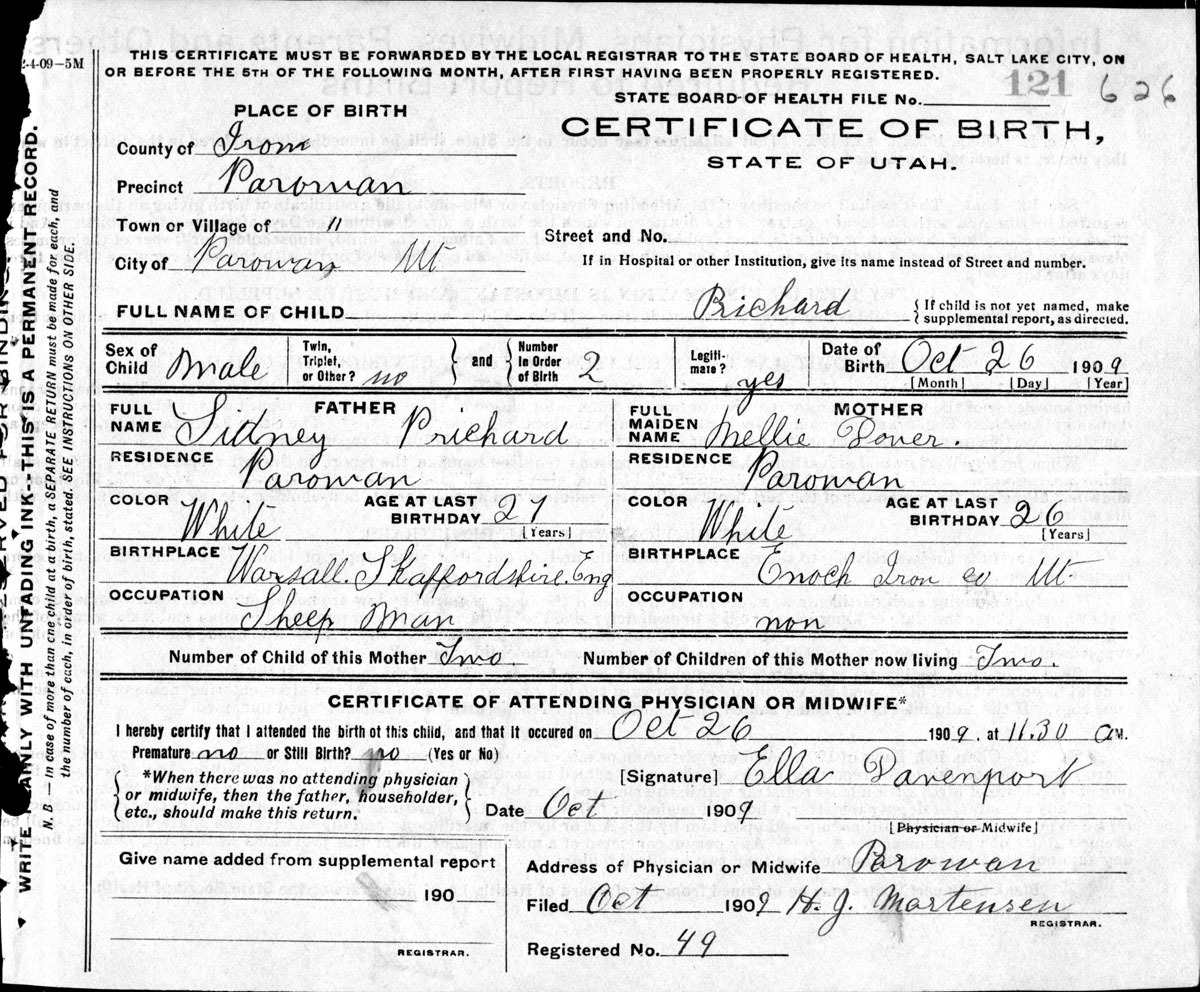 2-4-09-5M
THIS CERTIFICATE MUST BE FORWARDED BY THE LOCAL REGISTRAR TO THE STATE BOARD OF HEALTH, SALT LAKE CITY, ON
OR BEFORE THE 5TH OF THE FOLLOWING MONTH, AFTER FIRST HAVING BEEN PROPERLY REGISTERED.
STATE BOARD OF HEALTH FILE No. 121 626
PLACE OF BIRTH
CERTIFICATE OF BIRTH,
STATE OF UTAH.
County of Iron
Precinct Parowan
Town or Village of "
Street and No.
City of Parowan Ut
If in Hospital or other Institution, give its name instead of Street and number.
FULL NAME OF CHILD Prichard { If child is not yet named, make supplemental report, as directed.
Sex of Child Male Twin, Triplet, or Other? no } and { Number In Order of Birth 2 Legiti- mate? yes Date of Birth Oct 26 1909
[Month] [Day] [Year]
FULL NAME FATHER Sidney Prichard
FULL MAIDEN NAME MOTHER Nellie Dover.
RESIDENCE Parowan
RESIDENCE Parowan
COLOR White AGE AT LAST BIRTHDAY 27 [Years]
COLOR White AGE AT LAST BIRTHDAY 26 [Years]
BIRTHPLACE Warsall. Staffordshire. Eng
BIRTHPLACE Enoch Iron co Ut
OCCUPATION Sheep Man
OCCUPATION non
Number of Child of this Mother Two. Number of Children of this Mother now living Two.
CERTIFICATE OF ATTENDING PHYSICIAN OR MIDWIFE*
I hereby certify that I attended the birth of this child, and that it occured on Oct 26 1909, at 11.30 a M.
Premature no or Still Birth? no (Yes or No)
{ *When there was no attending physician
or midwife, then the father, householder,
etc., should make this return. }
[Signature] Ella Davenport
Date Oct 1909
[Physician or Midwife]
Give name added from supplemental report
190
REGISTRAR.
Address of Physician or Midwife Parowan
Filed Oct 1909 H. J. Mortensen
REGISTRAR.
Registered No. 49
WRITE PLAINLY WITH UNFADING INK—THIS IS A PERMANENT RECORD.
N. B.—In case of more than one child at a birth, a SEPARATE RETURN must be made for each, and
the number of each, in order of birth, stated. SEE INSTRUCTIONS ON OTHER SIDE.